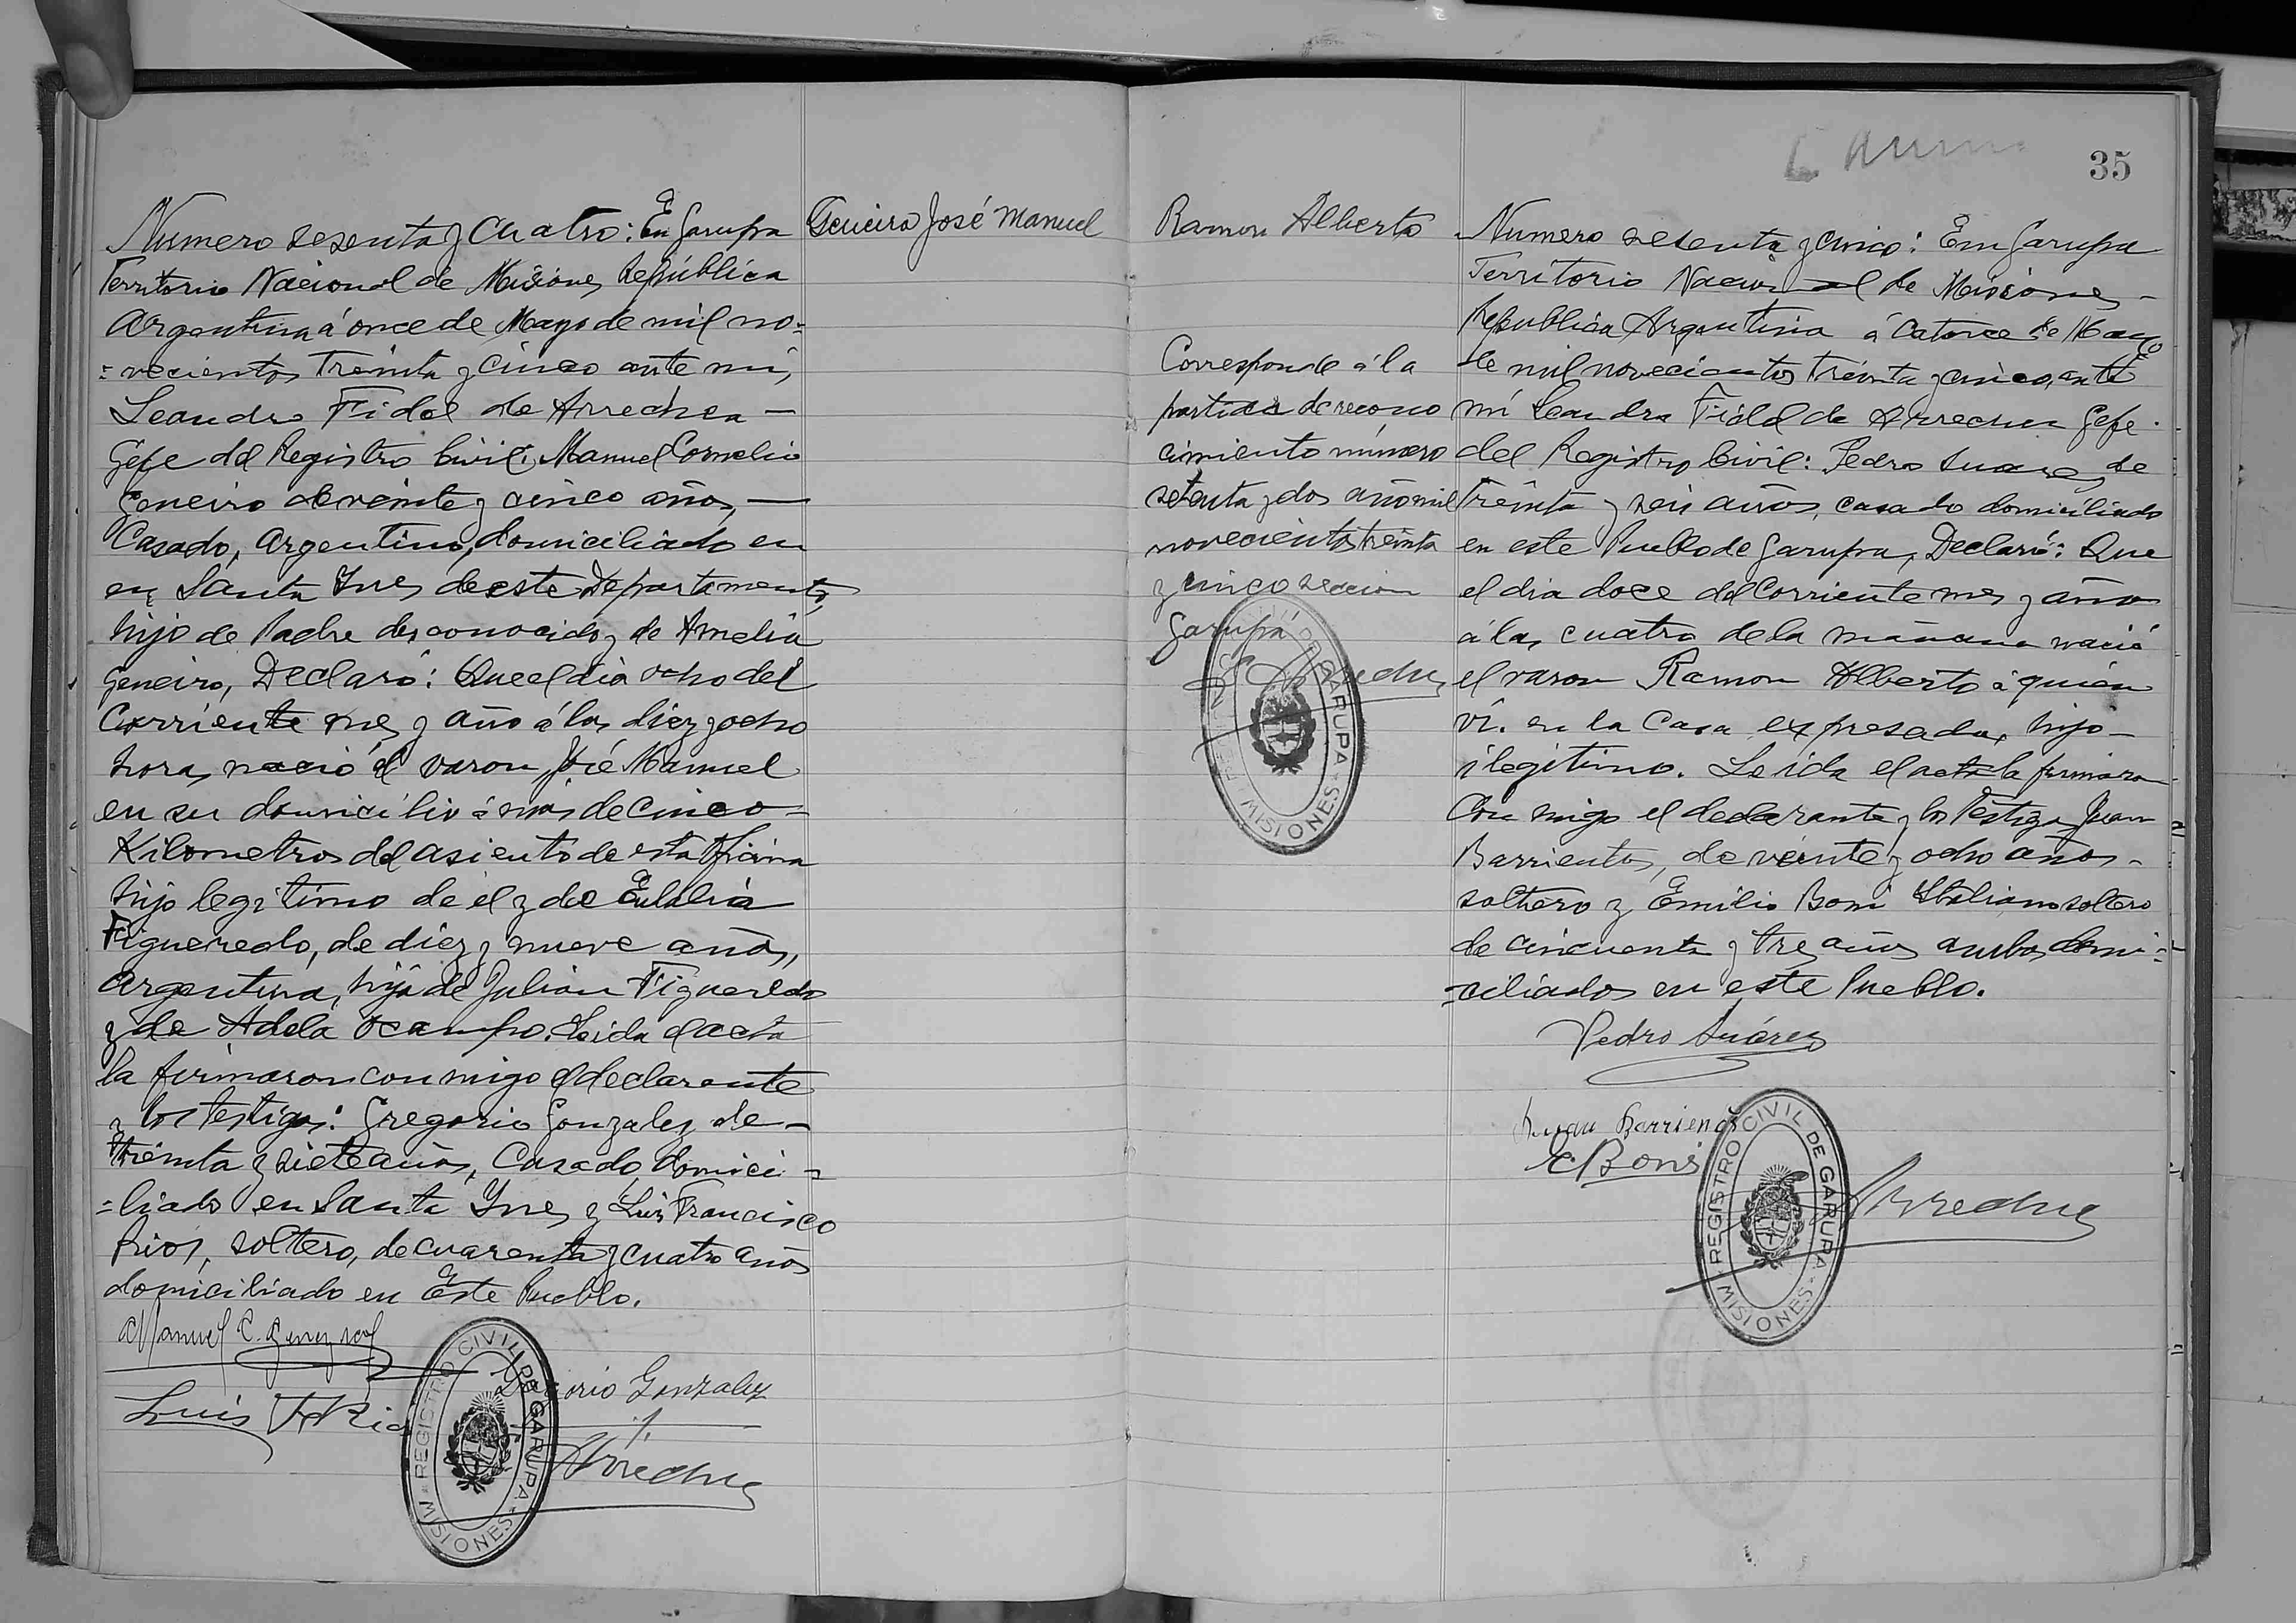 Numero sesenta y cuatro: En Garupa
Territorio Nacional de Misiones, República
Argentina á once de Mayo de mil no=
=vecientos treinta y cinco ante mí,
Leandro Fidel de Arrechea —
Gefe del Registro Civil; Manuel Cornelio
Geneiro de veinte y cinco años, —
Casado, Argentino, domiciliado en
en Santa Ines de este Departamento,
hijo de Padre desconocido y de Amelia
Geneiro, Declaró: Que el dia ocho del
Corriente mes y año á las diez y ocho
horas nació el varon José Manuel
en su domicilio á mas de cinco =
Kilometros del asiento de esta Oficina
hijo legitimo de el y de Eulalia
Figueredo, de diez y nueve años,
Argentina, hija de Julian Figueredo
y de Adela Ocampo. Leida el acta
la firmaron con migo el declarante
y los testigos: Gregorio Gonzalez de —
treinta y siete años, Casado, domici =
=liado en Santa Ynes y Luis Francisco
Rios, soltero, de cuarenta y cuatro años
domiciliado en Este Pueblo.
Manuel C.
Luis F Rio
Gregorio Gonzalez
Arrechea
REGISTRO CIVIL DE GARUPA
MISIONES
José Manuel
Ramon Alberto
Corresponde á la
partida de recono
cimiento número
setenta y dos año mil
novecientos treinta
y cinco seccion
Garupá
DE GARUPA
MISIONES
35
Numero sesenta y cinco: Em Garupa
Territorio Nacional de Misiones —
Republica Argentina á Catorce de Mayo
de mil novecientos treinta y cinco, ante
mí Leandro Fidel de Arrechea Gefe
del Registro Civil: Pedro Suarez, de
treinta y seis años, casado domiciliado
en este Pueblo de Garupa, Declaró: Que
el dia doce del Corriente mes y año
á las cuatro de la mañana nació
el varon Ramon Alberto á quien
ví. en la Casa expresada, hijo —
ilegitimo. Leida el acta la firmaron
Con migo el declarante y los Testigos Juan
Barrientos, de veinte y ocho años —
soltero y Emilio Boni Italiano soltero
de cincuenta y tres años ambos domi =
=ciliados en este Pueblo.
Pedro Suárez
Juan Barrientos
E Boni
Arrechea
REGISTRO CIVIL DE GARUPA
MISIONES